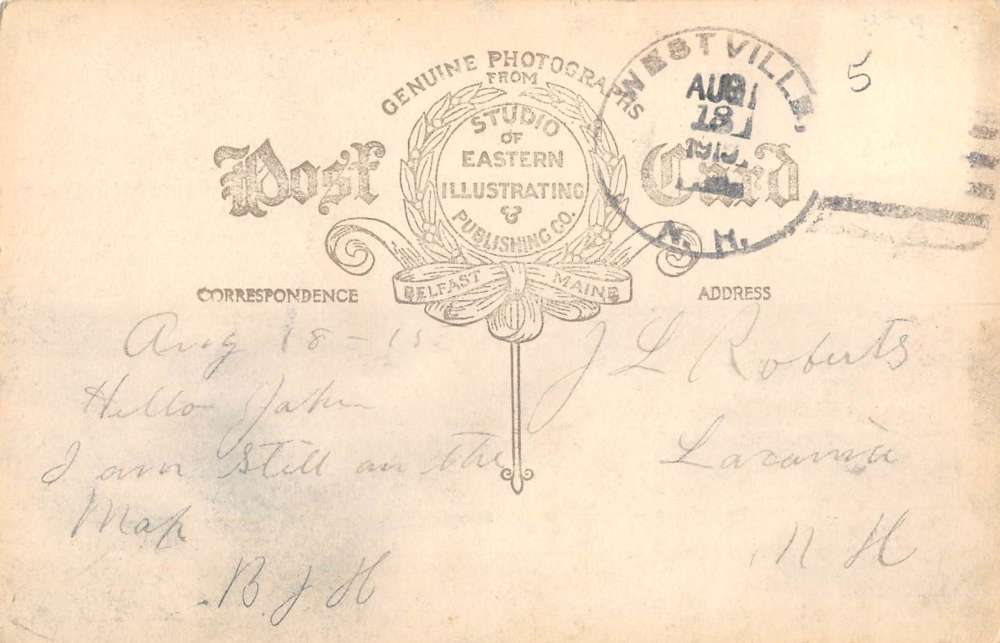 GENUINE PHOTOGRAPHS
FROM
STUDIO
OF
EASTERN
ILLUSTRATING
&
PUBLISHING CO.
BELFAST MAINE
Post Card
WESTVILLE,
AUG
18
N. H.
5
CORRESPONDENCE
ADDRESS
Aug 18-15
Hello John
I am Still on the
Map
B. J. H
J L Roberts
Laconia
N H